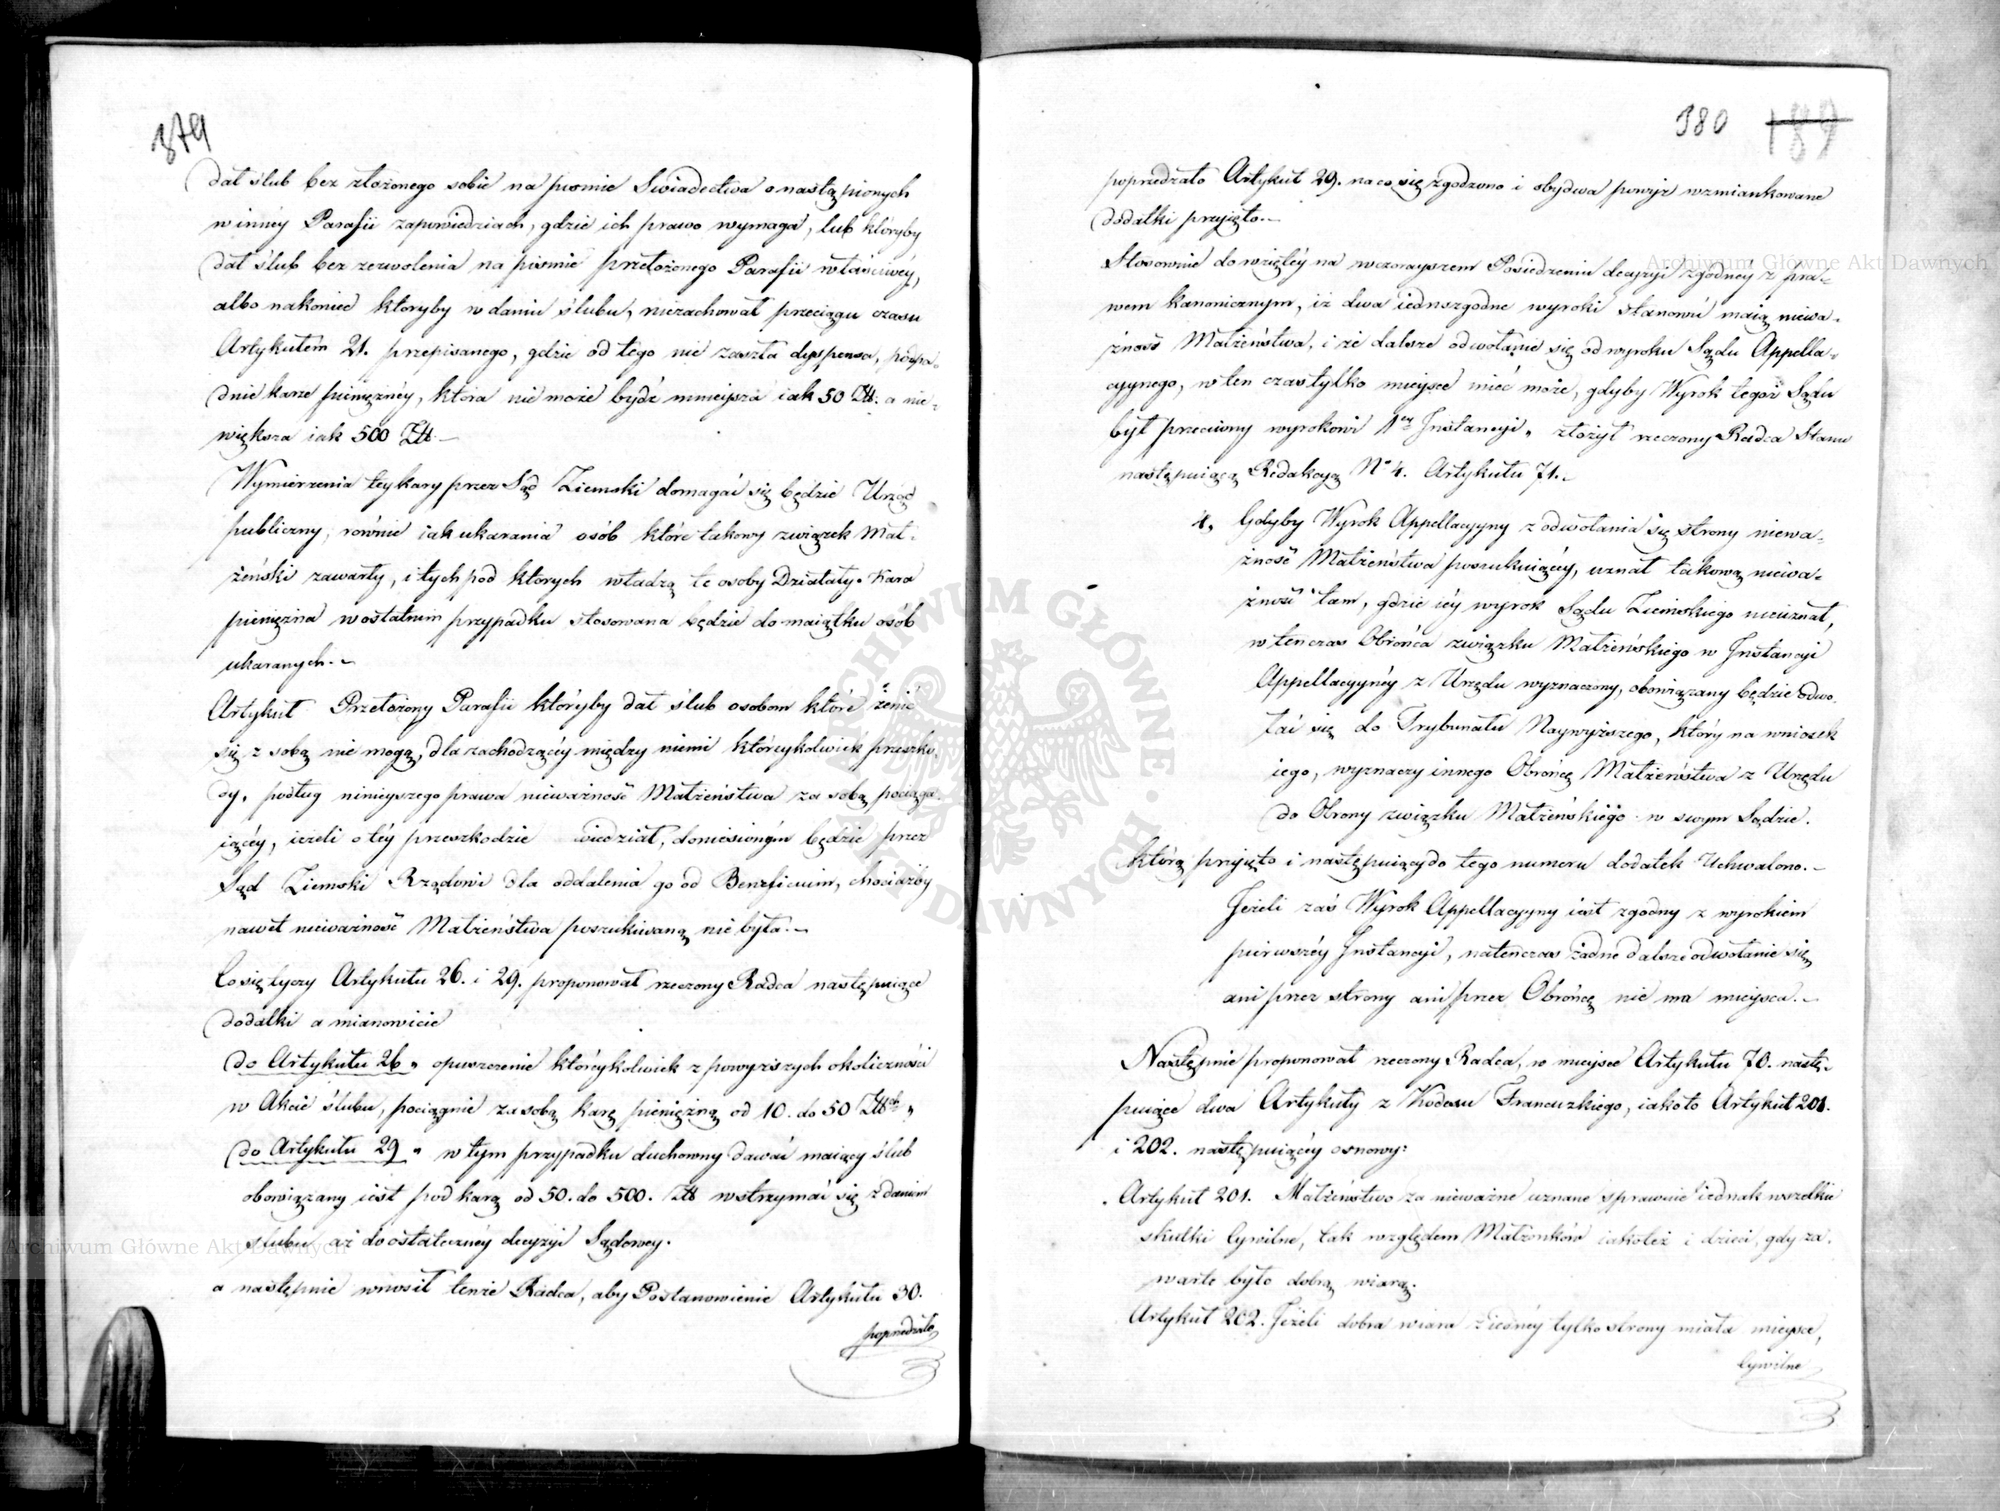 379
dał ślub bez złożonego sobie na piśmie Swiadectwa o nastąpionych
w innéy Parafii zapowiedziach, gdzie ich prawo wymaga, lub któryby
dał ślub bez zezwolenia na piśmie przełożonego Parafii właściwéy,
albo nakoniec któryby w daniu ślubu, niezachował przeciągu czasu
Artykułem 21. przepisanego, gdzie od tego nie zaszła dyspensa, podpa-
dnie karze pieniężnéy, która nie może bydź mnieysza iak 50 Złł. a nie-
większa iak 500 Złł.—
Wymierzenia tey kary przez Sąd Ziemski domagać się będzie Urząd
publiczny, równie iak ukarania osób które takowy związek Mał-
żeński zawarły, i tych pod których władzą te osoby Działały. Kara
pieniężna w ostatnim przypadku stosowana będzie do maiątku osób
ukaranych.—
Artykuł Przełożony Parafii któryby dał ślub osobom które żenić
się z sobą nie mogą, dla zachodzącéy między niemi któreykolwiek przeszko-
dy, podług ninieyszego prawa nieważność Małżeństwa za sobą pociąga-
iącéy, ieżeli o téy przeszkodzie wiedział, doniesionym będzie przez
Sąd Ziemski Rządowi dla oddalenia go od Beneficium, chociażby
nawet nieważność Małżeństwa poszukiwaną nie była.—
Co się tyczy Artykułu 26. i 29. proponował rzeczony Radca następuiące
dodatki a mianowicie
do Artykułu 26 „ opuszczenie któréykolwiek z powyższych okoliczności
w Akcie ślubu, pociągnie za sobą karę pieniężną od 10. do 50 Złłch „
do Artykułu 29 „ w tym przypadku duchowny dawać maiący ślub
obowiązany iest pod karą od 50. do 500. Złł wstrzymać się z daniem
ślubu aż do ostatecznéy decyzyi Sądowey.
a następnie wnosił tenże Radca, aby Postanowienie Artykułu 30.
poprzedzało
380 189
poprzedzało Artykuł 29. na co się zgodzono i obydwa powyż wzmiankowane
dodatki przyięto.—
Stosownie do wziętéy na wczorayszem Posiedzeniu decyzyi zgodney z pra-
wem kanonicznym, iż dwa iednozgodne wyroki stanowić maią niewa-
żność Małżeństwa, i że dalsze odwołanie się od wyroku Sądu Appella-
cyynego, w ten czas tylko mieysce mieć może, gdyby Wyrok tegoż Sądu
był przeciwny wyrokowi 1ey Instancyi, złożył rzeczony Radca Stanu
następuiącą Redakcyą No 4. Artykułu 71.—
4. Gdyby Wyrok Appellacyyny z odwołania się strony niewa-
żność Małżeństwa poszukuiącéy, uznał takową niewa-
żność tam, gdzie iéy wyrok Sądu Ziemskiego nieuznał,
w tenczas Obrońca związku Małżeńskiego w Instancyi
Appellacyynéy z Urzędu wyznaczony, obowiązany będzie odwo-
łać się do Trybunału Naywyższego, który na wniosek
iego, wyznaczy innego Obrońcę Małżeństwa z Urzędu
do Obrony związku Małżeńskiego w swym Sądzie.
którą przyięto i następuiący do tego numeru dodatek Uchwalono.—
Jeżeli zaś Wyrok Appellacyyny iest zgodny z wyrokiem
pierwszéy Instancyi, natenczas żadne dalsze odwołanie się
ani przez strony ani przez Obrońcę nie ma mieysca.—
Następnie proponował rzeczony Radca, w mieysce Artykułu 70. nastę-
puiące dwa Artykuły z Kodexu Francuzkiego, iako to Artykuł 201.
i 202. następuiącéy osnowy:
Artykuł 201. Małżeństwo za nieważne uznane sprawuie iednak wszelkie
skutki Cywilne, tak względem Małżonków iakoteż i dzieci, gdy za-
warte było dobrą wiarą.
Artykuł 202. Jeżeli dobra wiara z iednéy tylko strony miała mieysce,
Cywilne
Archiwum Główne Akt Dawnych
Archiwum Główne Akt Dawnych
ARCHIWUM GŁÓWNE AKT DAWNYCH